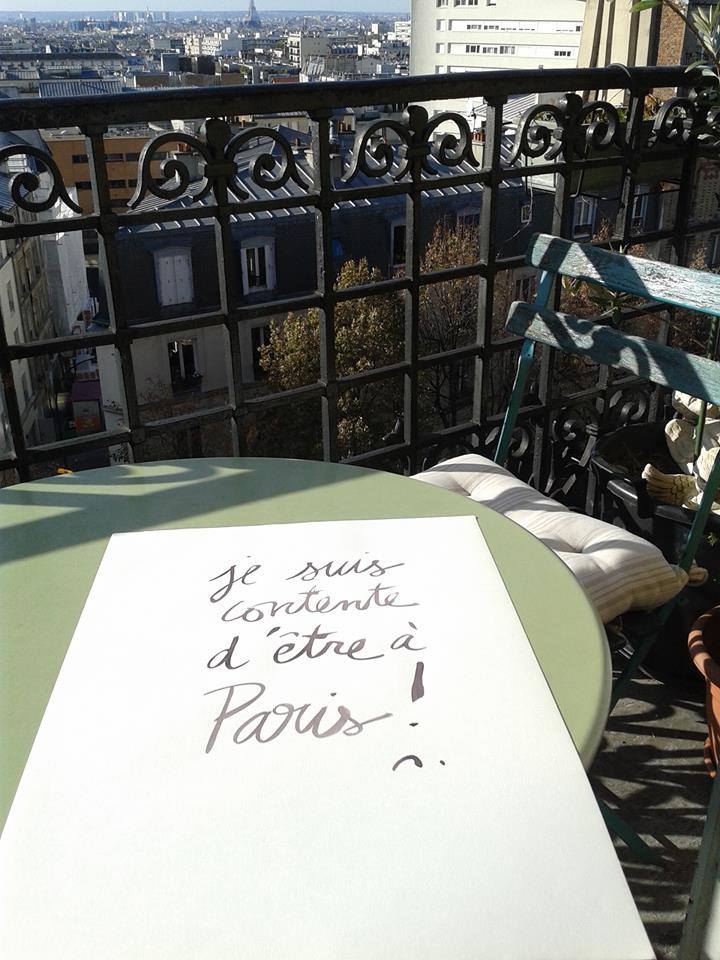 je suis
contente
d'être à
Paris !